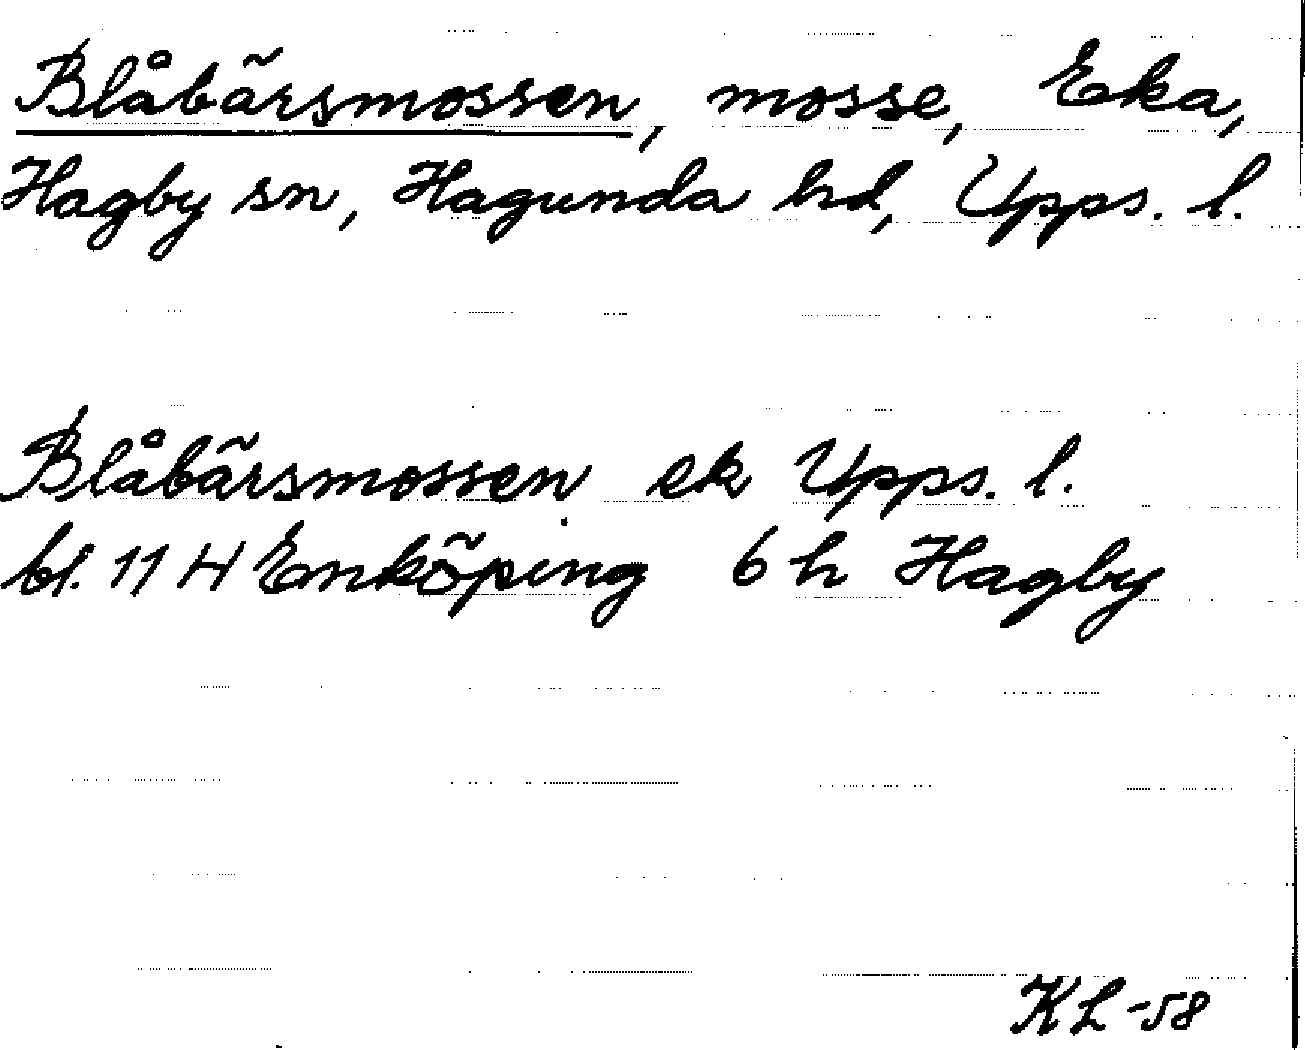 Blåbärsmossen, mosse, Eka,
Hagby sn, Hagunda hd, Upps. l.
Blåbärsmossen ek Upps. l.
bl. 11 H Enköping 6 h Hagby
KL -58